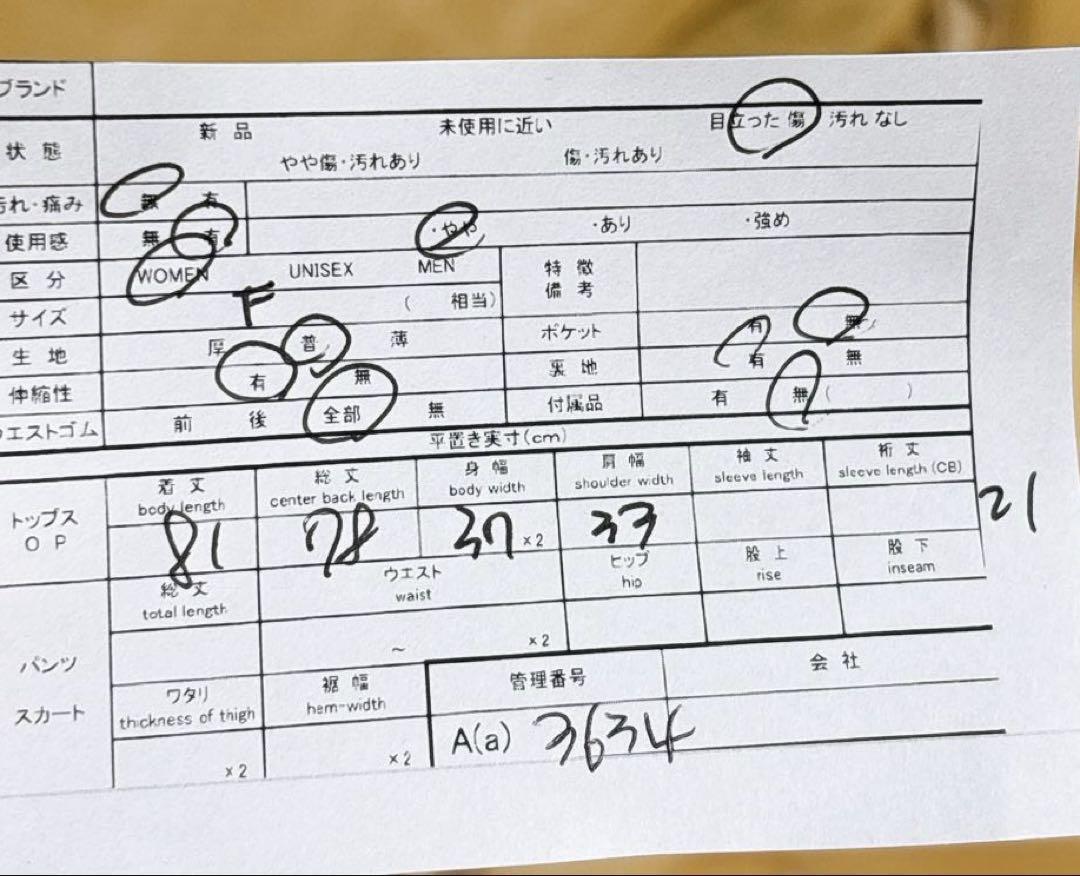 ブランド
状態 新品 未使用に近い 目立った傷 汚れなし
やや傷・汚れあり 傷・汚れあり
汚れ・痛み 無 有
使用感 無 有 ・やや ・あり ・強め
区分 WOMEN UNISEX MEN 特徴
備考
サイズ F ( 相当)
ポケット 有 無
生地 厚 普 薄
裏地 有 無
伸縮性 有 無
付属品 有 無 ( )
ウエストゴム 前 後 全部 無
平置き実寸(cm)
着丈 総丈 身幅 肩幅 袖丈 裄丈
body length center back length body width shoulder width sleeve length sleeve length (CB)
トップス
OP
81 78 37 ×2 33 21
総丈 ウエスト ヒップ 股上 股下
total length waist hip rise inseam
~ ×2
パンツ
スカート
ワタリ 裾幅 管理番号 会社
thickness of thigh hem-width
×2 ×2 A(a) 3634